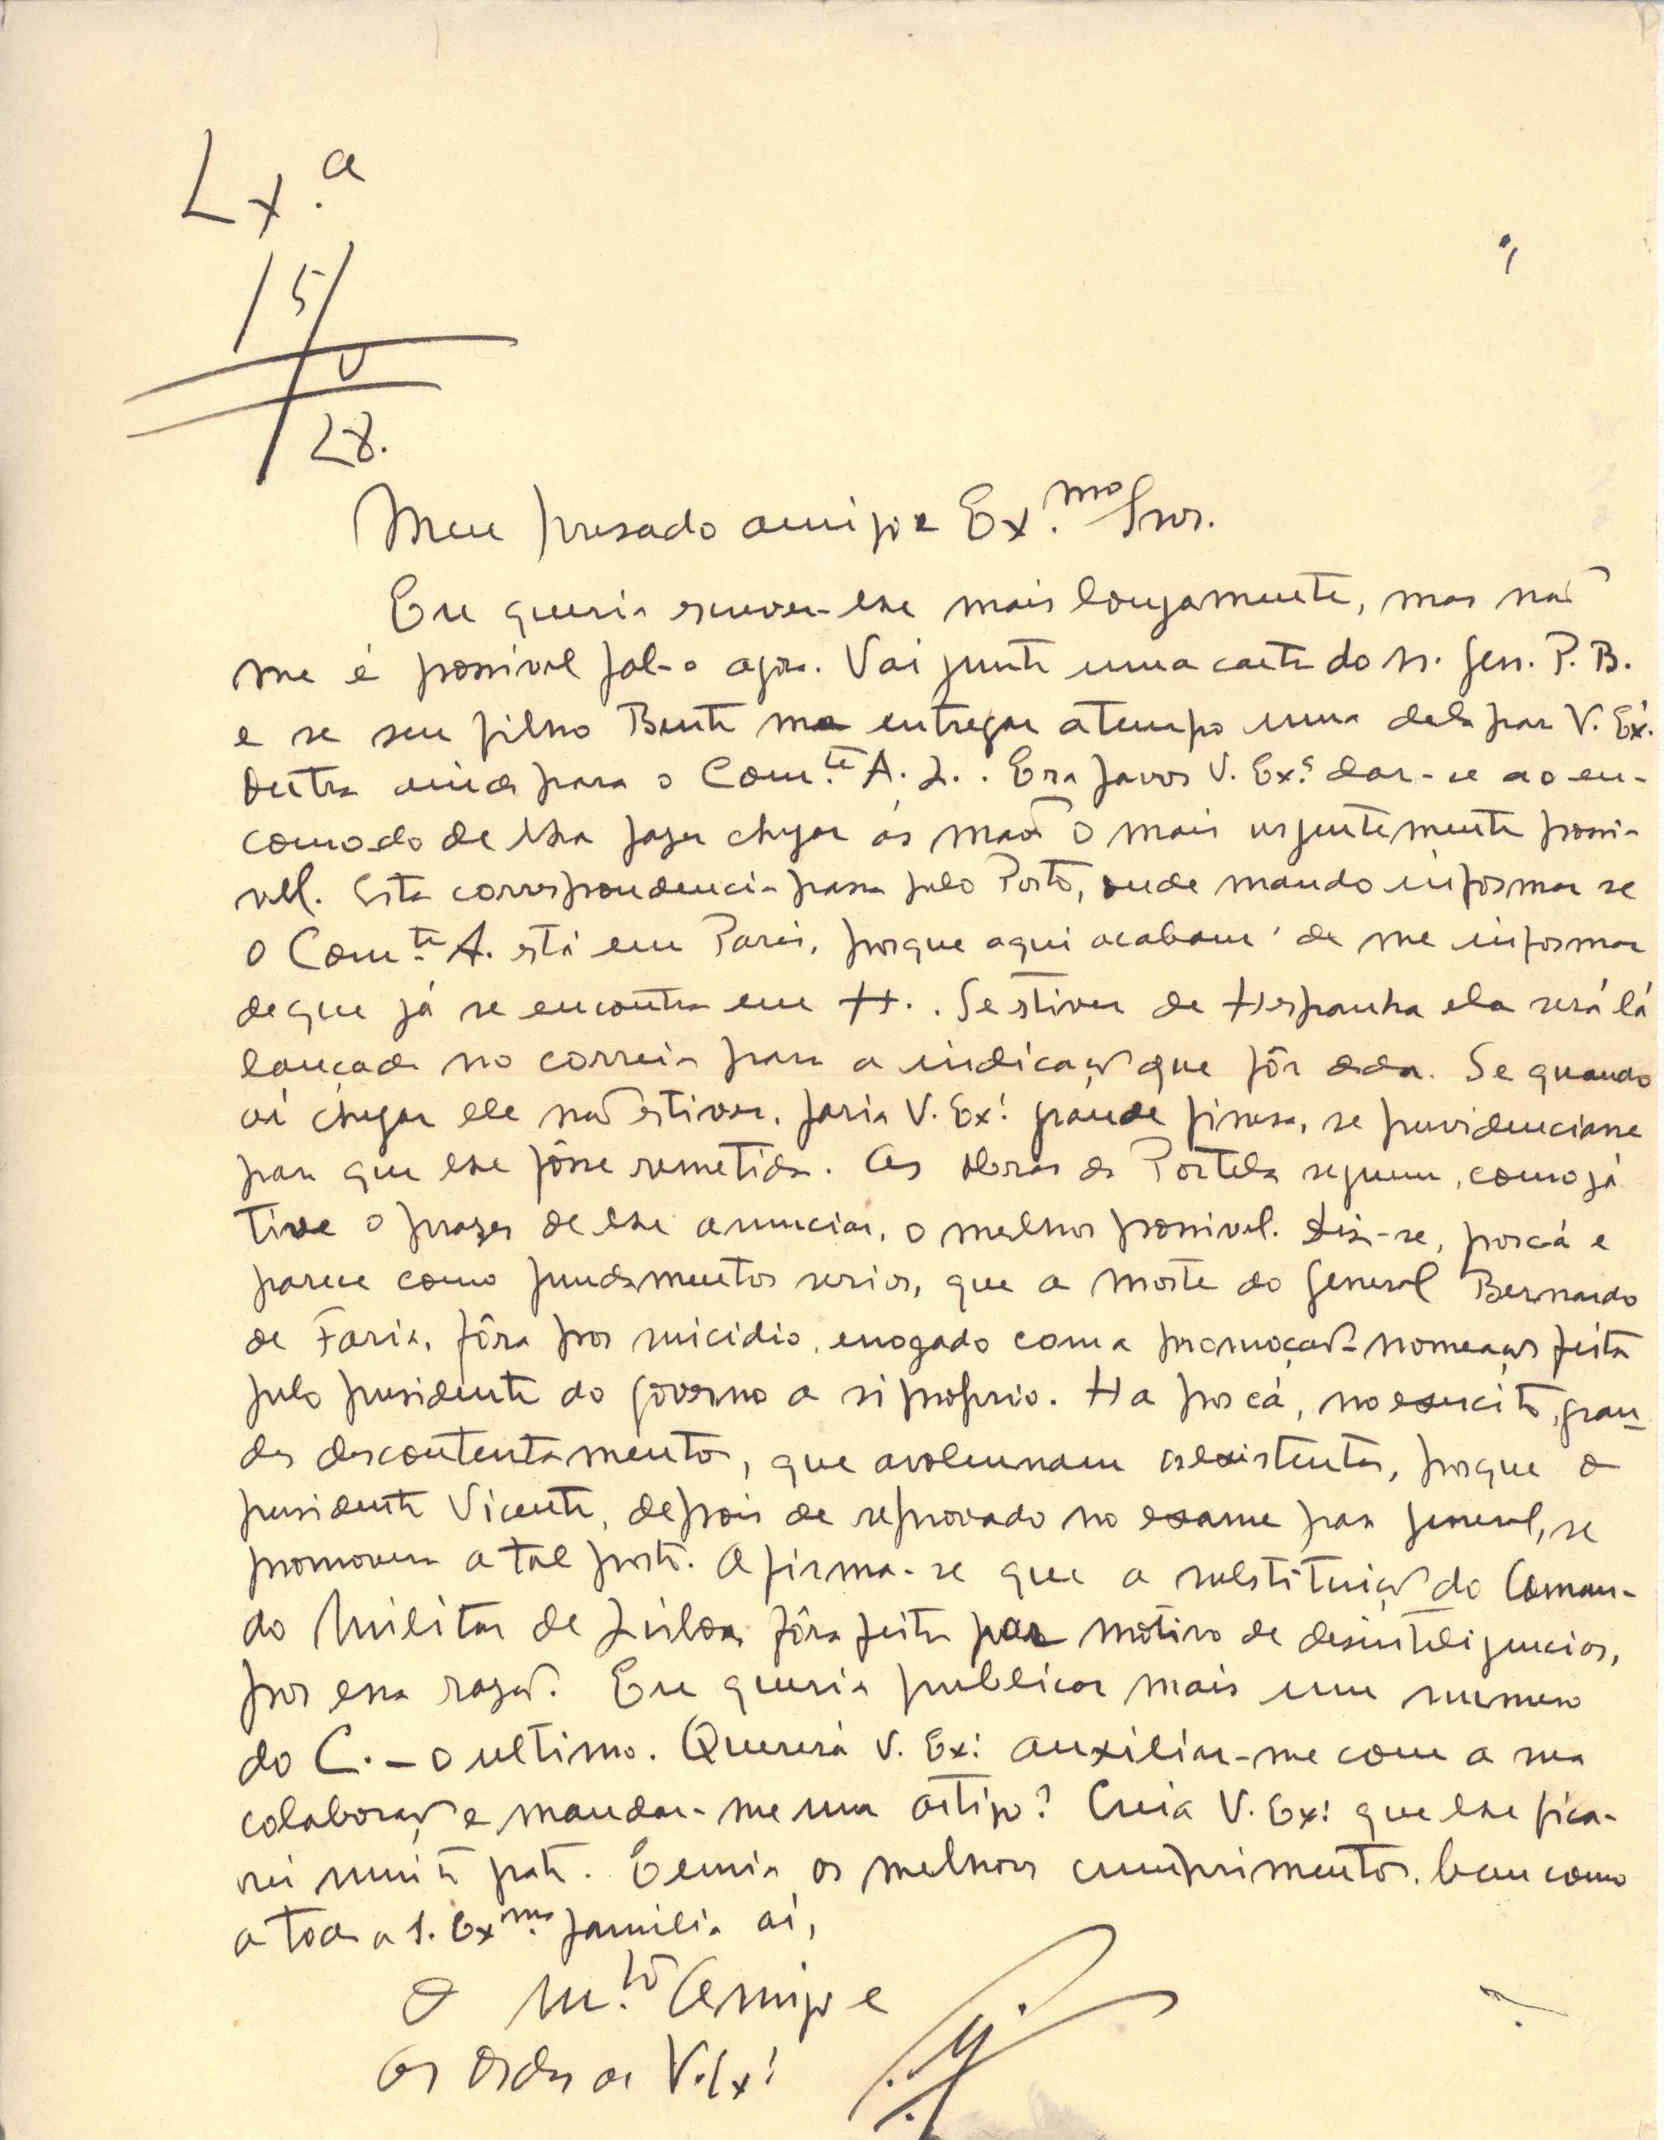 Lx.ª
15/
V
28.
Meu presado amigo e Ex.mo Snr.
Eu queria escrever-lhe mais longamente, mas não
me é possivel fal-o agora. Vai junta uma carta do sr. Gen. P. B.
e se seu filho Bento me entregar a tempo uma dele para V. Ex.ª
Outra ainda para o Com.te A. L.. Era favor V. Ex.ª dar-se ao en-
comodo de lha fazer chegar ás mãos o mais urgentemente possi-
vel. Esta correspondencia passa pelo Porto, onde mando informar se
o Com.te A. está em Paris, porque aqui acabam de me informar
de que já se encontra em H.. Se estiver de Hespanha ela será lá
lançada no correio para a indicação que fôr dada. Se quando
aí chegar ele não estiver, faria V. Ex.ª grande fineza, se providenciasse
para que lhe fôsse remetida. As obras da Portela seguem, como já
tive o prazer de lhe anunciar, o melhor possivel. Diz-se, por cá e
parece como fundamentos serios, que a morte do general Bernardo
de Faria, fôra por suicidio, enogado com a promoção e nomeação feita
pelo presidente do governo a si proprio. Ha por cá, no exercito, gran-
des descontentamentos, que avolumam os existentes, porque o
presidente Vicente, depois de reprovado no exame para general, se
promoveu a tal posto. Afirma-se que a substituição do Coman-
do Militar de Lisboa, fôra feita por motivo de desinteligencias,
por essa razão. Eu queria publicar mais um numero
do C. - o ultimo. Quererá V. Ex.ª auxiliar-me com a sua
colaboração e mandar-me um artigo? Creia V. Ex.ª que lhe fica-
rei muito grato. E envia os melhores cumprimentos, bem como
a toda a S. Ex.ma familia aí,
O M.to Amigo e
ás ordens de V. Ex.ª